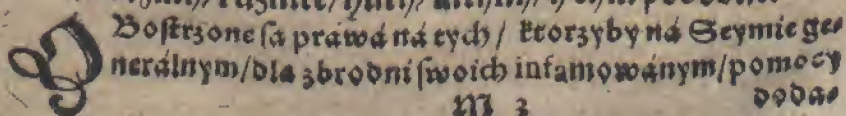 OBoſtrzone ſą práwá ná tych/ ktorzyby ná Seymie ge⸗
nerálnym/dla zbrodni ſwoich infamowánym/pomocy
M 3 doda⸗